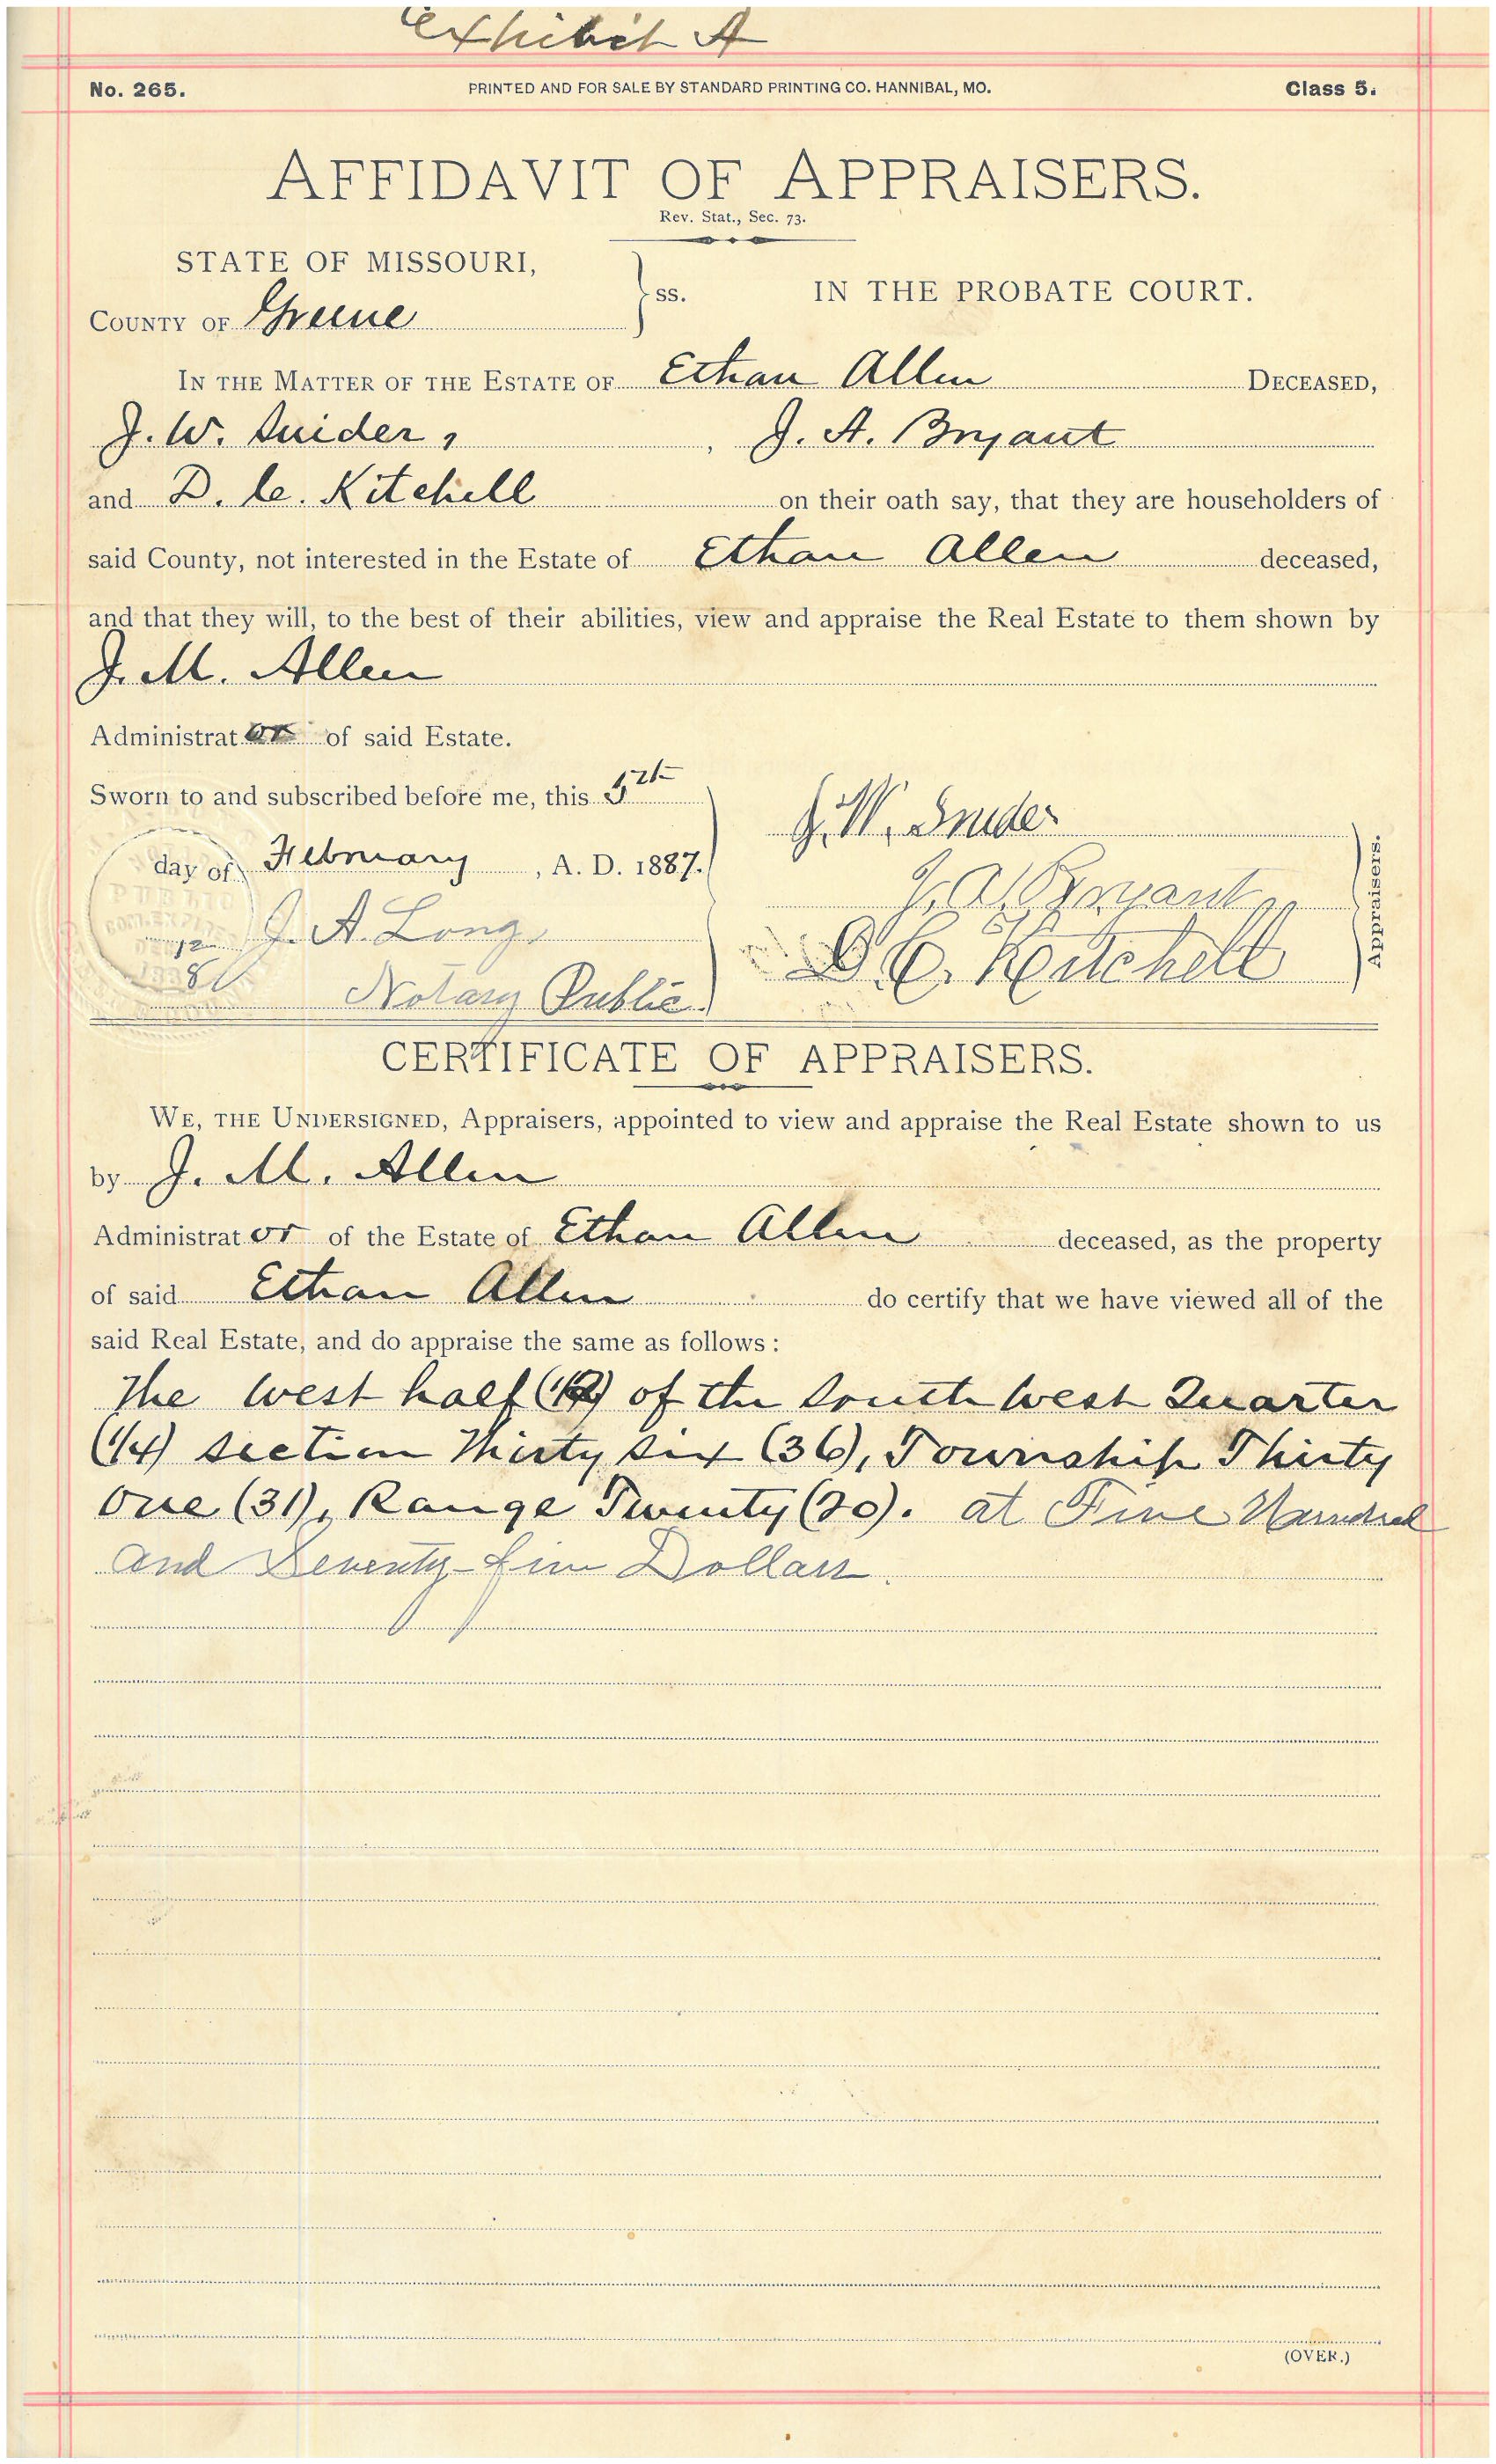 Exhibit A
No. 265. PRINTED AND FOR SALE BY STANDARD PRINTING CO. HANNIBAL, MO. Class 5.
AFFIDAVIT OF APPRAISERS.
Rev. Stat., Sec. 73.
STATE OF MISSOURI,
COUNTY OF Greene } ss. IN THE PROBATE COURT.
IN THE MATTER OF THE ESTATE OF Ethan Allen DECEASED,
J. W. Snider, , J. A. Bryant
and D. C. Kitchell on their oath say, that they are householders of
said County, not interested in the Estate of Ethan Allen deceased,
and that they will, to the best of their abilities, view and appraise the Real Estate to them shown by
J. M. Allen
Administrator of said Estate.
Sworn to and subscribed before me, this 5th
day of February, A. D. 1887.
J. A. Long,
Notary Public
J. W. Snider
J. A. Bryant
D. C. Kitchell
Appraisers.
CERTIFICATE OF APPRAISERS.
WE, THE UNDERSIGNED, Appraisers, appointed to view and appraise the Real Estate shown to us
by J. M. Allen
Administrator of the Estate of Ethan Allen deceased, as the property
of said Ethan Allen do certify that we have viewed all of the
said Real Estate, and do appraise the same as follows:
The West half (1/2) of the South West Quarter
(1/4) section Thirty six (36), Township Thirty
One (31), Range Twenty (20). at Five Hundred
and Seventy-five Dollars.
(OVER.)